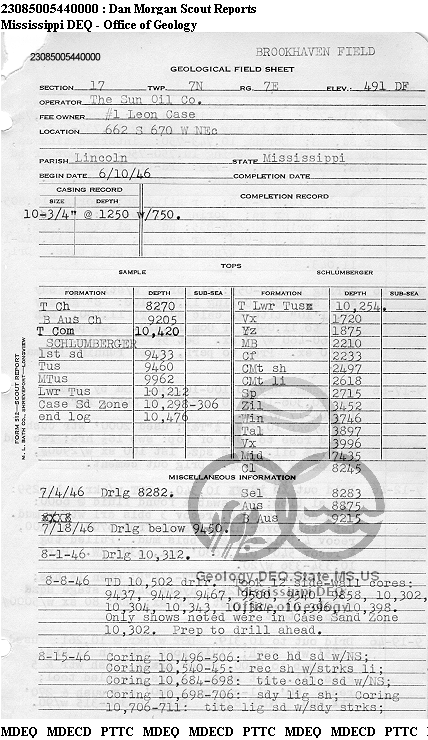 23085005440000 : Dan Morgan Scout Reports
Mississippi DEQ - Office of Geology
23085005440000
BROOKHAVEN FIELD
GEOLOGICAL FIELD SHEET
SECTION 17 TWP. 7N RG. 7E ELEV. 491 DF
OPERATOR The Sun Oil Co.
FEE OWNER #1 Leon Case
LOCATION 662 S 670 W NEc
PARISH Lincoln STATE Mississippi
BEGIN DATE 6/10/46 COMPLETION DATE
CASING RECORD COMPLETION RECORD
SIZE DEPTH
10-3/4" @ 1250 w/750.
TOPS
SAMPLE SCHLUMBERGER
FORMATION DEPTH SUB-SEA FORMATION DEPTH SUB-SEA
T Ch 8270 T Lwr Tus 10,254.
B Aus Ch 9205 Vx 1720
T Com 10,420 Yz 1875
SCHLUMBERGER MB 2210
1st sd 9433 Cf 2233
Tus 9460 CMt sh 2497
MTus 9962 CMt li 2618
Lwr Tus 10,212 Sp 2715
Case Sd Zone 10,298-306 Zil 3452
end log 10,476 Win 3746
Tal 3897
Vx 3996
Mid 7435
Cl 8245
FORM 512—SCOUT REPORT
M. L. BATH CO., SHREVEPORT—LONGVIEW
MISCELLANEOUS INFORMATION
7/4/46 Drlg 8282. Sel 8283
Aus 8875
B Aus 9215
7/18/46 Drlg below 9450.
8-1-46 Drlg 10,312.
8-8-46 TD 10,502 drlr. Took 12 side-wall cores:
9437, 9442, 9467, 9500, 9540, 9858, 10,302,
10,304, 10,343, 10,384, 10,396, 10,398.
Only shows noted were in Case Sand Zone
10,302. Prep to drill ahead.
Geology.DEQ.State.MS.US
Mississippi DEQ
Office of Geology
8-15-46 Coring 10,496-506: rec hd sd w/NS;
Coring 10,540-45: rec sh w/strks li;
Coring 10,684-698: tite calc sd w/NS;
Coring 10,698-706: sdy lig sh; Coring
10,706-711: tite lig sd w/sdy strks;
MDEQ MDECD PTTC MDEQ MDECD PTTC MDEQ MDECD PTTC MDEQ MDECD